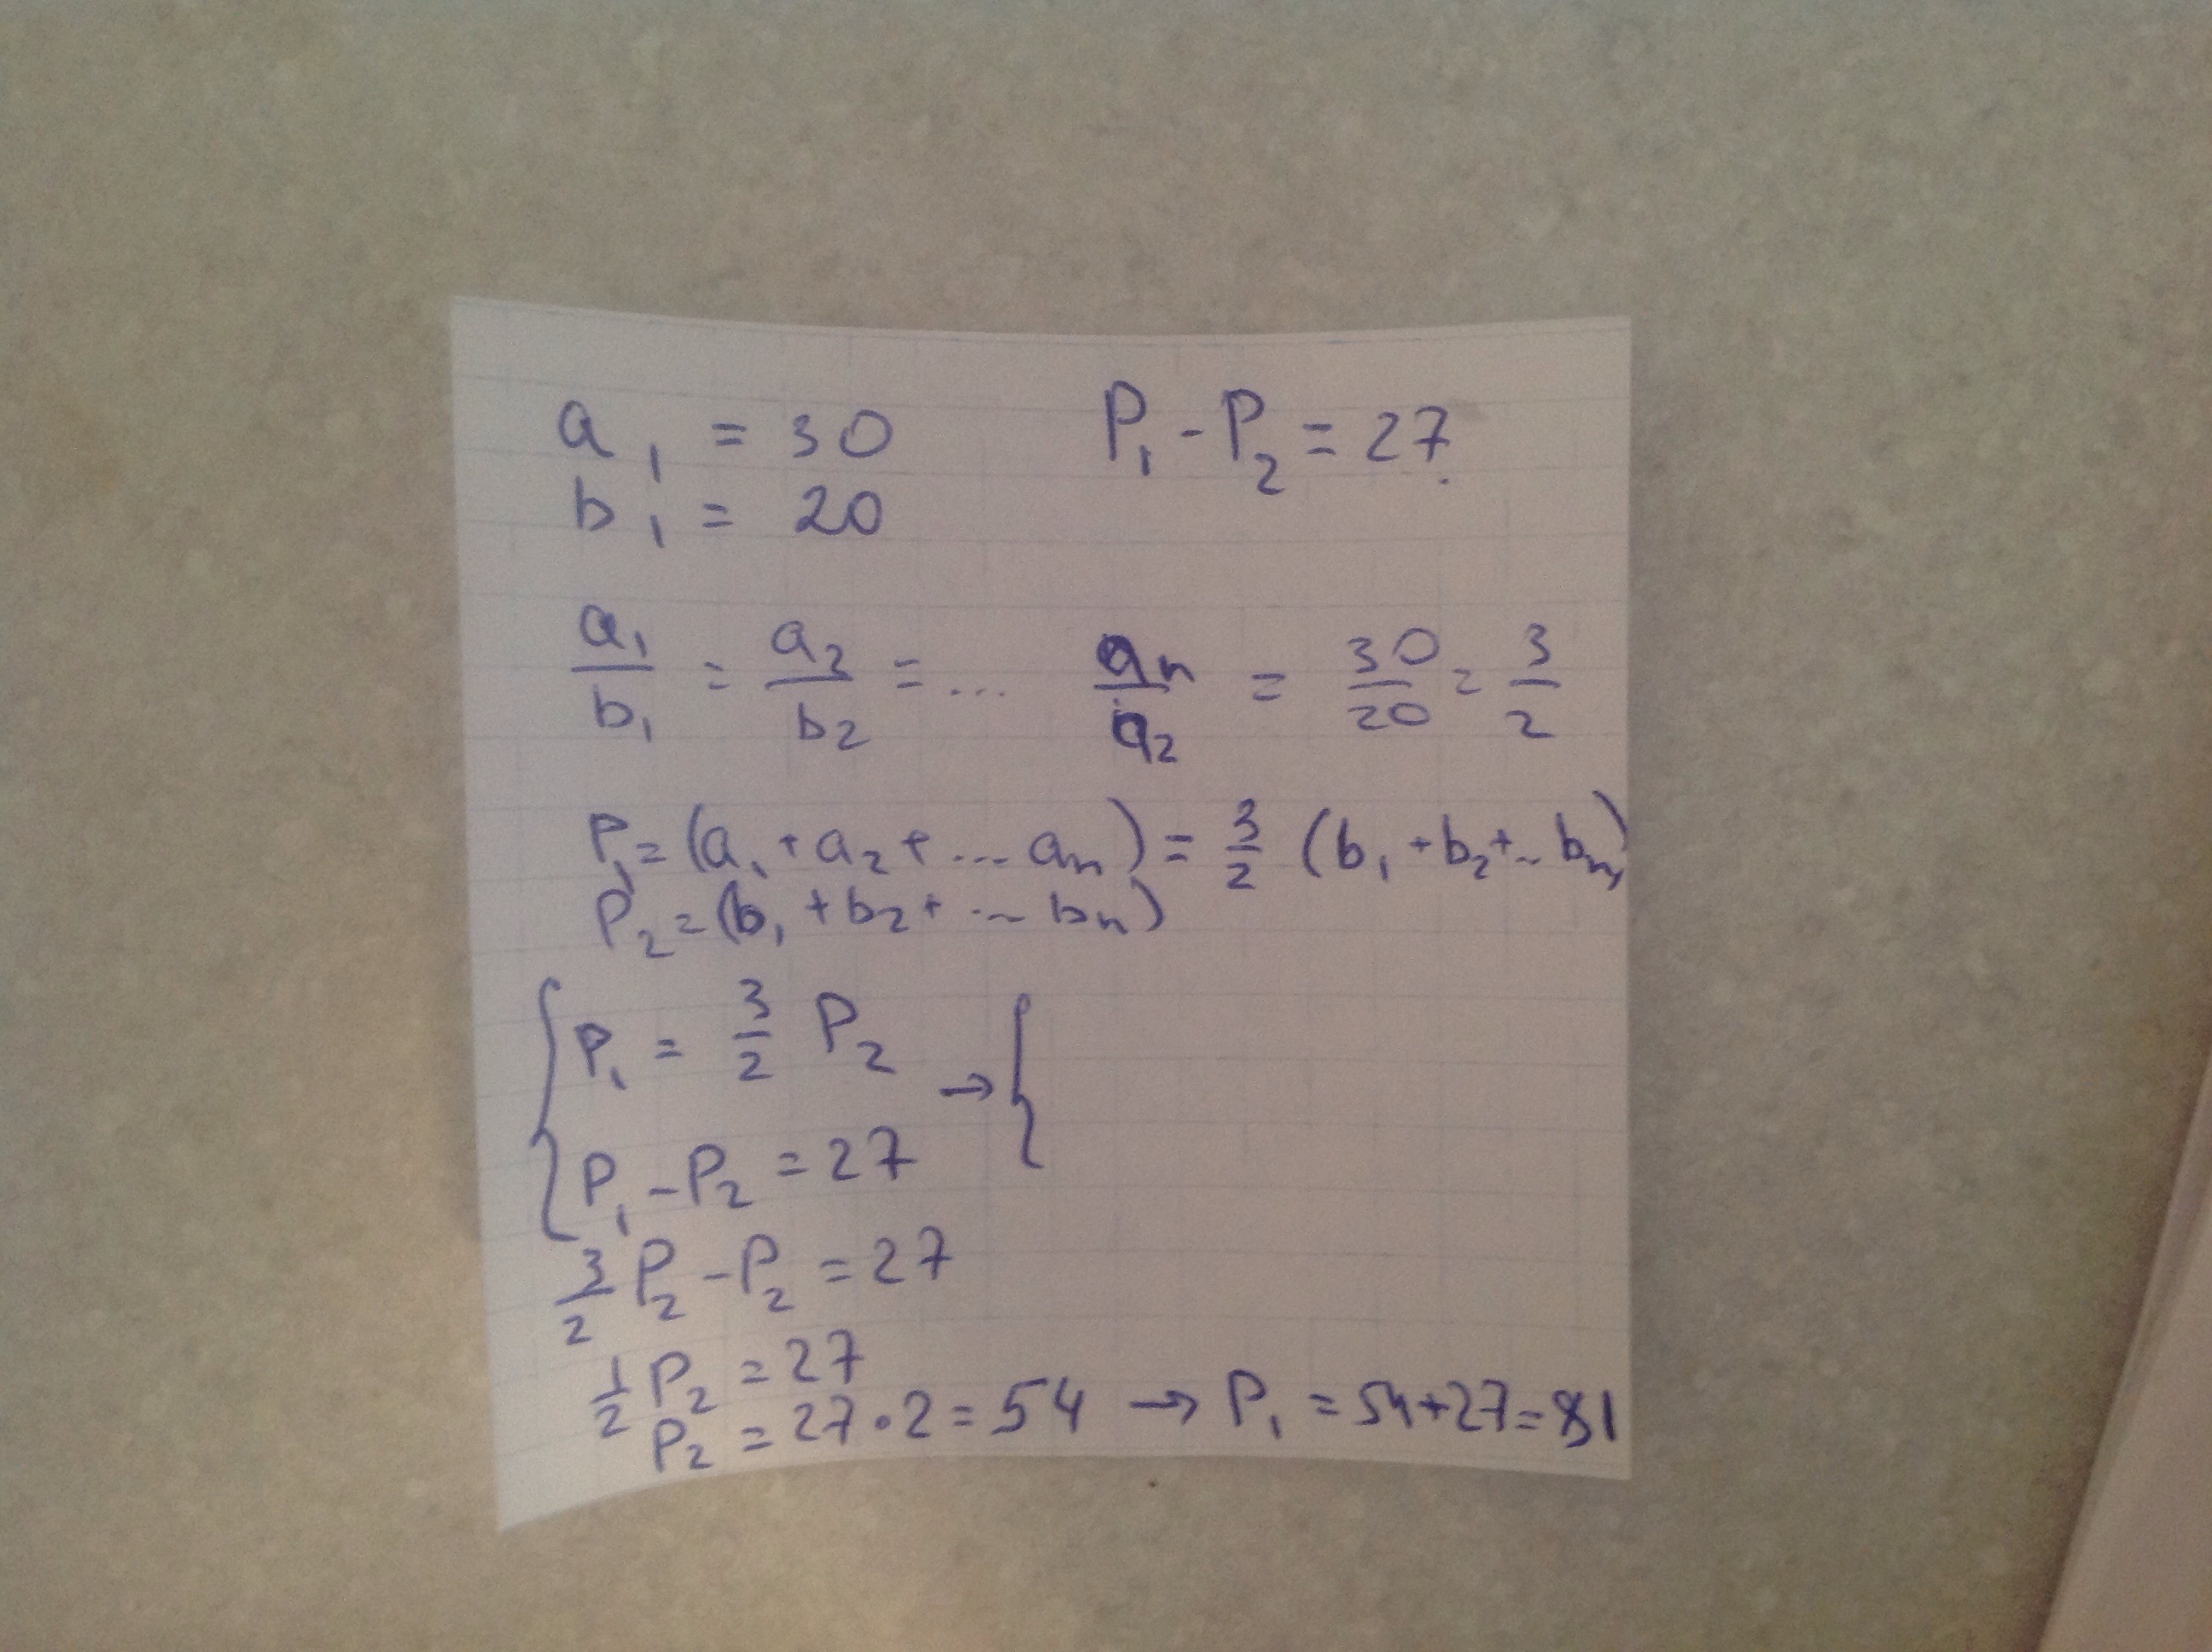 a₁ = 30 P₁ - P₂ = 27.
b₁ = 20
a₁/b₁ = a₂/b₂ = ... aₙ/a₂ = 30/20 = 3/2
P₁ = (a₁ + a₂ + ... aₙ) = 3/2 (b₁ + b₂ + ... bₙ)
P₂ = (b₁ + b₂ + ... bₙ)
{ P₁ = 3/2 P₂ → {
P₁ - P₂ = 27
3/2 P₂ - P₂ = 27
1/2 P₂ = 27
P₂ = 27 · 2 = 54 → P₁ = 54 + 27 = 81